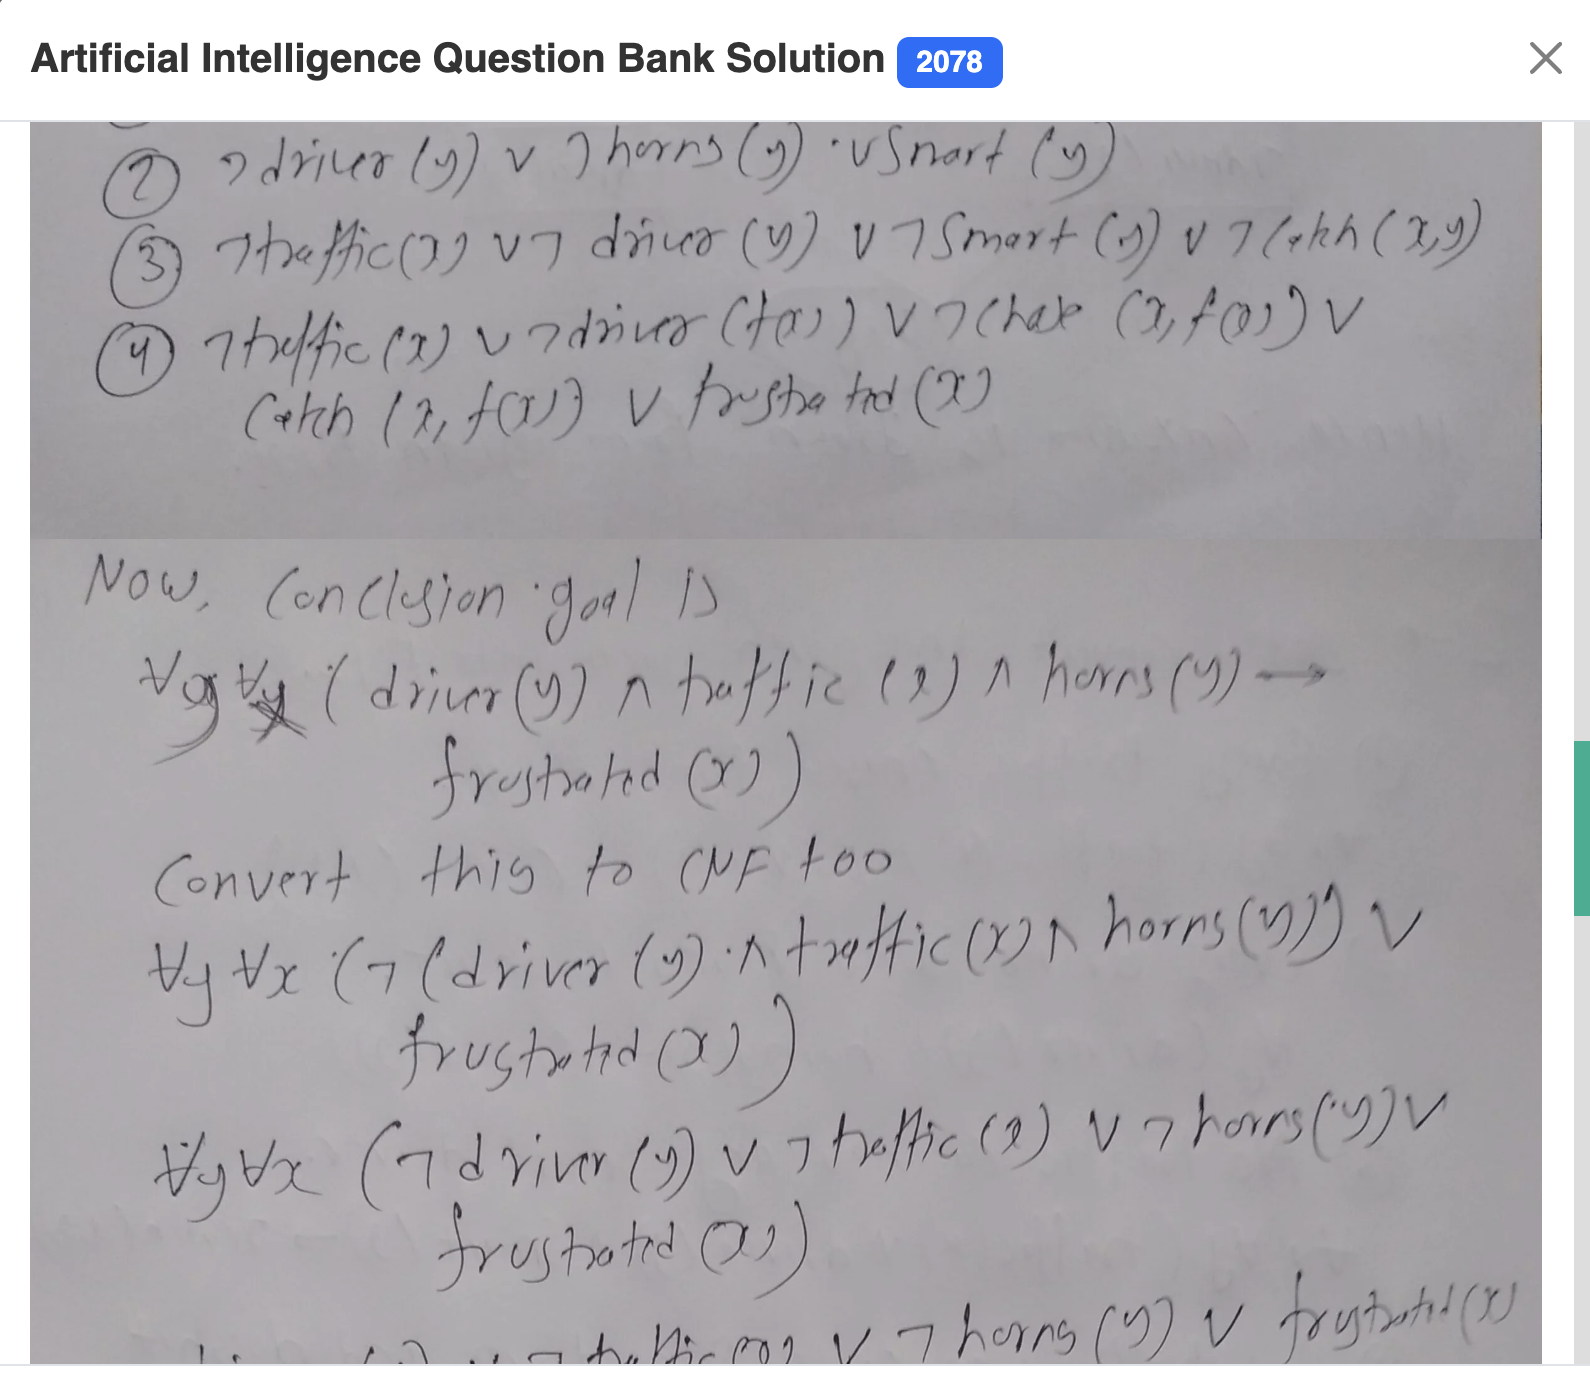 Artificial Intelligence Question Bank Solution 2078
② ¬driver (y) ∨ ¬horns (y) ∨ Smart (y)
③ ¬traffic(x) ∨ ¬ driver (y) ∨ ¬Smart (y) ∨ ¬Catch (x,y)
④ ¬traffic (x) ∨ ¬driver (f(x)) ∨ ¬chase (x, f(x)) ∨
Catch (x, f(x)) ∨ frustrated (x)
Now, Conclusion goal is
∀y ( driver (y) ∧ traffic (x) ∧ horns (y) →
frustrated (x))
Convert this to CNF too
∀y ∀x (¬ (driver (y) ∧ traffic (x) ∧ horns (y)) ∨
frustrated (x))
∀y ∀x (¬ driver (y) ∨ ¬ traffic (x) ∨ ¬ horns (y) ∨
frustrated (x))
∨ ¬ horns (y) ∨ frustrated (x)